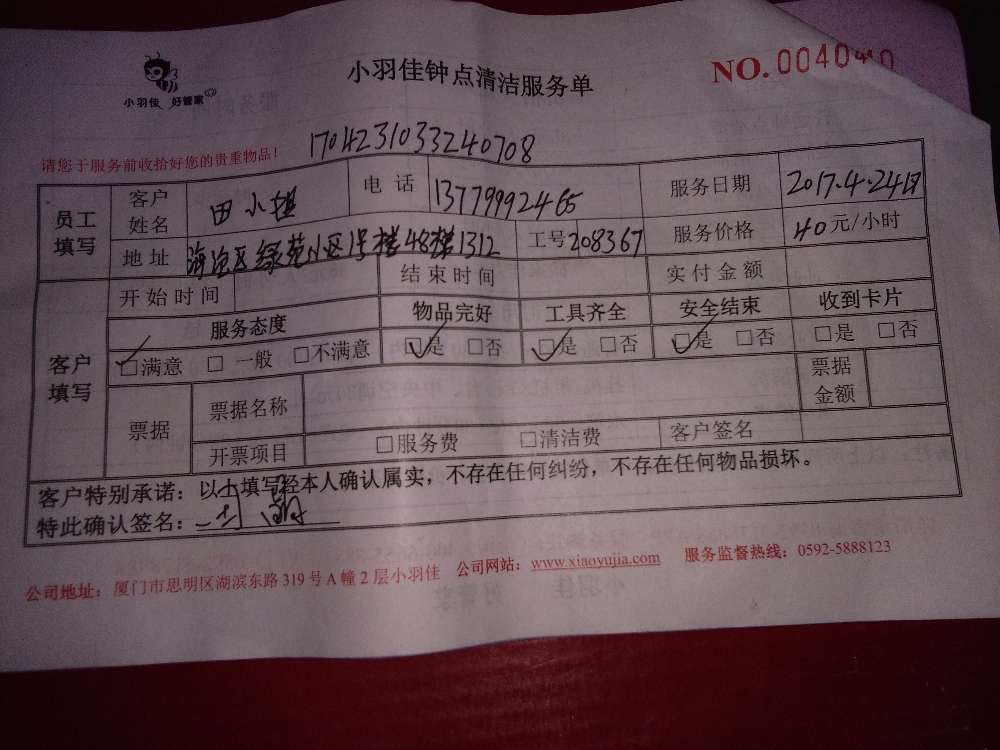 小羽佳 好管家
小羽佳钟点清洁服务单
NO. 0040410
请您于服务前收拾好您的贵重物品！
1704231033240708
员工填写 客户姓名 田小姐 电话 13779992465 服务日期 2017.4.24日
地址 海沧区绿苑小区1号楼48梯1312 工号 208367 服务价格 40元/小时
客户填写 开始时间 结束时间 实付金额
服务态度 物品完好 工具齐全 安全结束 收到卡片
☑满意 □一般 □不满意 ☑是 □否 ☑是 □否 ☑是 □否 □是 □否
票据 票据名称 票据金额
开票项目 □服务费 □清洁费 客户签名
客户特别承诺：以上填写经本人确认属实，不存在任何纠纷，不存在任何物品损坏。
特此确认签名：
公司地址：厦门市思明区湖滨东路319号A幢2层小羽佳 公司网站：www.xiaoyujia.com 服务监督热线：0592-5888123